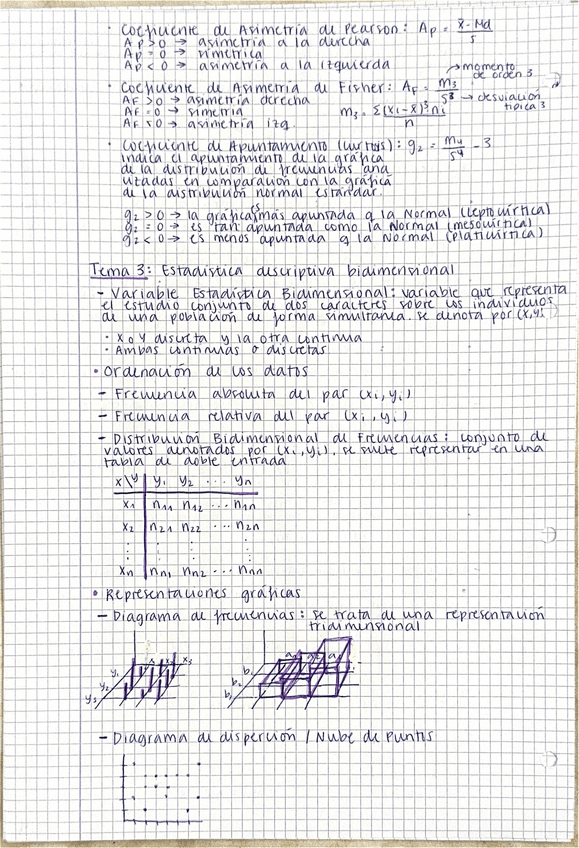 · Coeficiente de Asimetría de Pearson: Ap = x̄ - Md / s
Ap > 0 → asimetría a la derecha
Ap = 0 → simétrica
Ap < 0 → asimetría a la izquierda
· Coeficiente de Asimetría de Fisher: AF = m3 / s³ → momento de orden 3
→ desviación típica 3
AF > 0 → asimetría derecha
AF = 0 → simetría
AF < 0 → asimetría izq.
m3 = Σ(xi - x̄)³ ni / n
· Coeficiente de Apuntamiento (curtosis): g2 = m4 / s⁴ - 3
indica el apuntamiento de la gráfica
de la distribución de frecuencias ana
lizadas en comparación con la gráfica
de la distribución normal estándar.
g2 > 0 → la gráfica es más apuntada q la Normal (leptocúrtica)
g2 = 0 → es tan apuntada como la Normal (mesocúrtica)
g2 < 0 → es menos apuntada q la Normal (platicúrtica)
Tema 3: Estadística descriptiva bidimensional
- Variable Estadística Bidimensional: variable que representa
el estudio conjunto de dos caracteres sobre los individuos
de una población de forma simultanea. se denota por (x,y)
· x o y discreta y la otra continua
· Ambas continuas o discretas
• Ordenación de los datos
- Frecuencia absoluta del par (xi, yi)
- Frecuencia relativa del par (xi, yi)
- Distribución Bidimensional de Frecuencias: conjunto de
valores denotados por (xi, yi), se suele representar en una
tabla de doble entrada
x\y y1 y2 ··· yn
x1 n11 n12 ··· n1n
x2 n21 n22 ··· n2n
⋮ ⋮ ⋮ ⋮
xn nn1 nn2 ··· nnn
• Representaciones gráficas
- Diagrama de frecuencias: se trata de una representación
tridimensional
y1 y2 y3 x1 x2 x3
b1 b2 b3 a1 a2 a3
- Diagrama de dispersión / Nube de Puntos